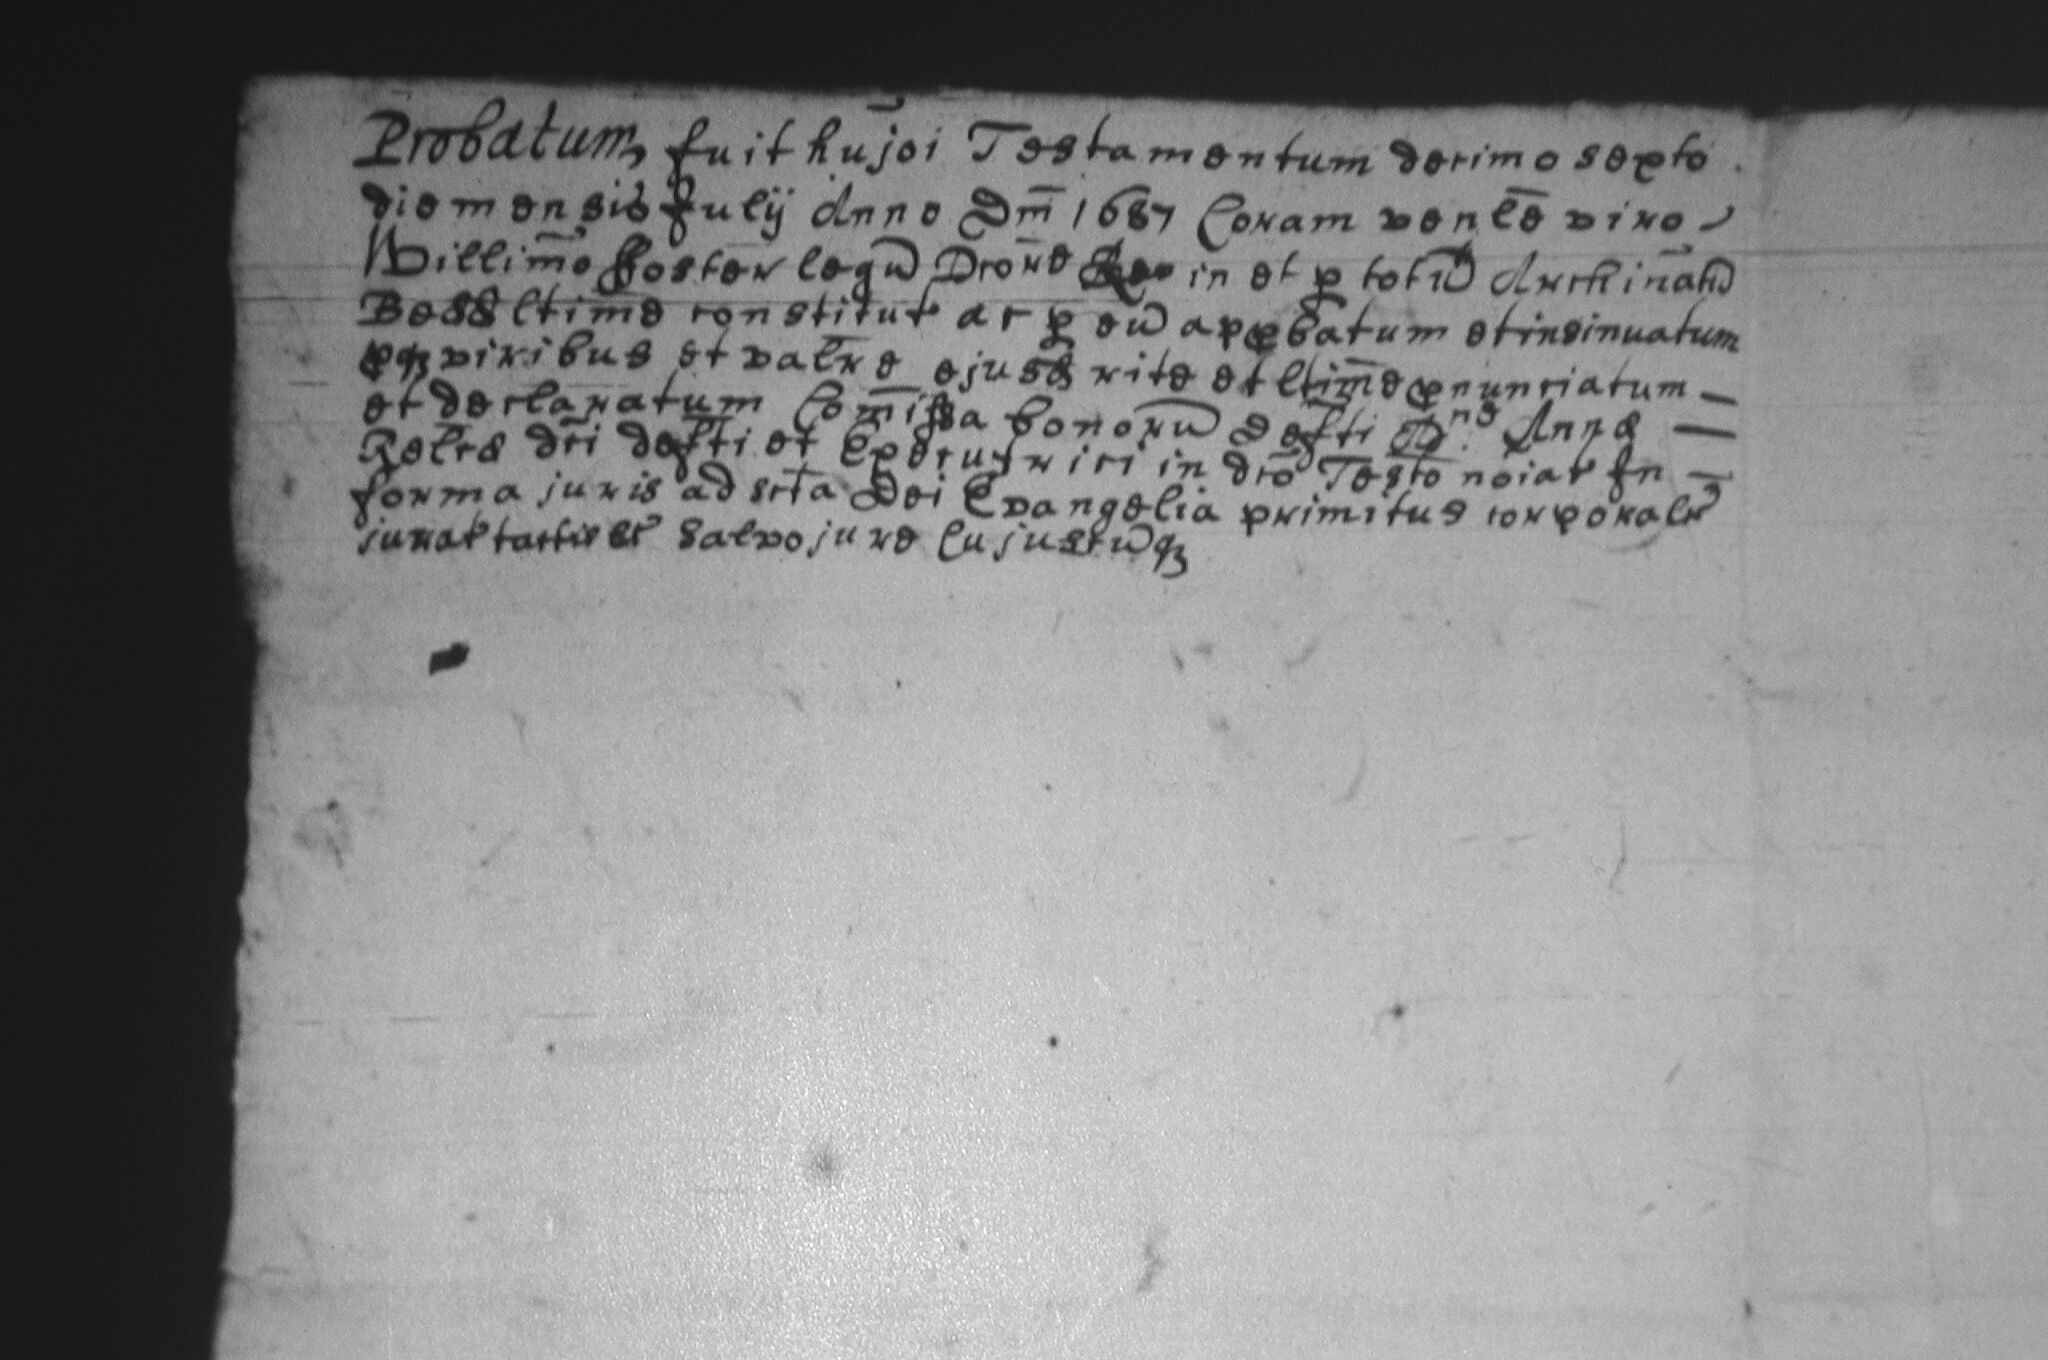 Probatum fuit hujōi Testamentum decimo sexto
die mensis Julij Anno Dm̄ 1687 Coram venlē viro
Willim̄o Foster legū Dcōre in et p totū Archinatū
Bedd ltimē constitut ac p eū appbatum et insinuatum
pq viribus et valrē ejusd rite et ltimē pnunciatum
et declaratum Com̄issa bonorū defti Annæ
Relcæ dc̄i defti et Executrici in dcō Testō nōiat In
forma juris ad sc̄ta Dei Evangelia primitus corporalr
jurat tactis et Salvo jure Cujuscūq